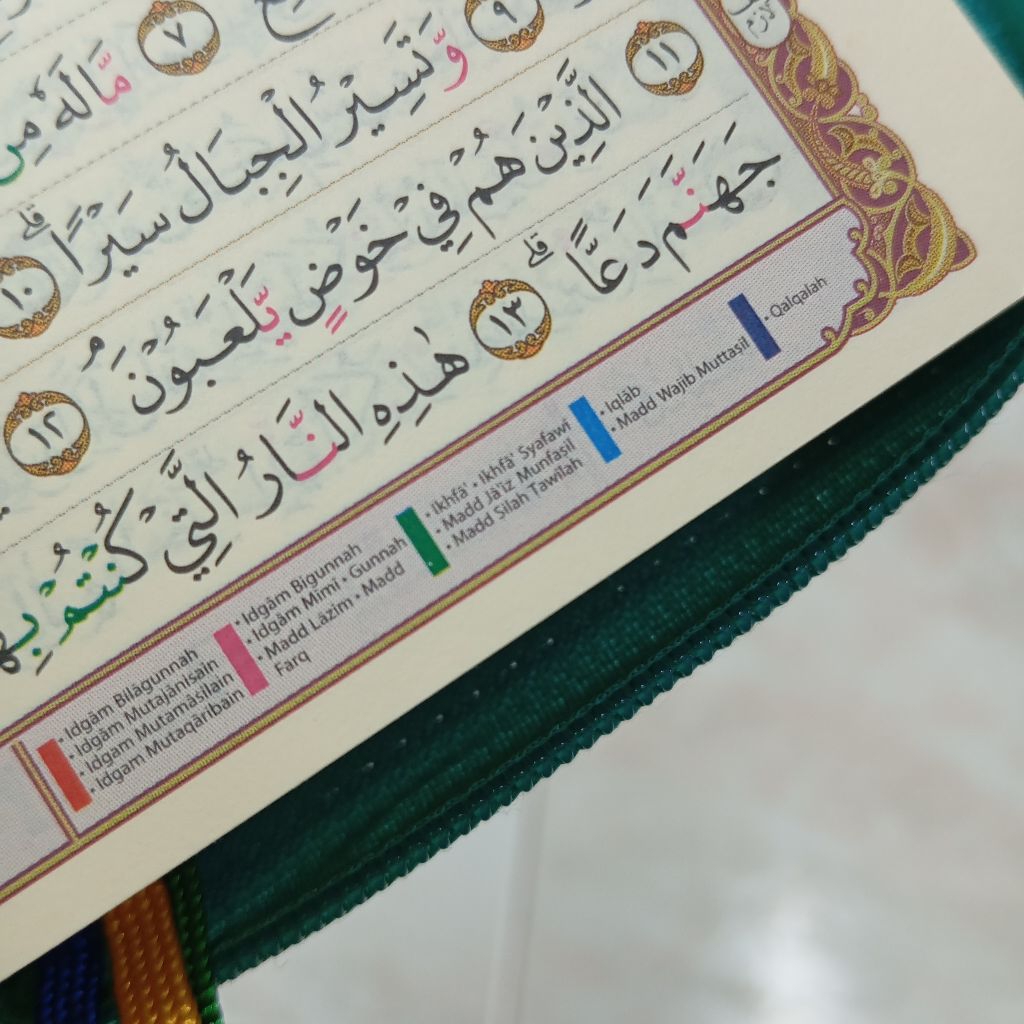 ٧ مَّا لَهٗ مِنْ
٩ وَّتَسِيْرُ الْجِبَالُ سَيْرًاۗ ١٠
١١ الَّذِيْنَ هُمْ فِيْ خَوْضٍ يَّلْعَبُوْنَۘ ١٢
جَهَنَّمَ دَعًّاۗ ١٣ هٰذِهِ النَّارُ الَّتِيْ كُنْتُمْ بِهَا
• Idgām Bilāgunnah
• Idgām Mutajānisain
• Idgam Mutamāsilain
• Idgam Mutaqāribain
• Idgām Bigunnah
• Idgām Mimī • Gunnah
• Madd Lāzim • Madd
Farq
• Ikhfā' • Ikhfā' Syafawī
• Madd Jā'iz Munfaṣil
• Madd Ṣilah Ṭawīlah
• Iqlāb
• Madd Wajib Muttaṣil
• Qalqalah